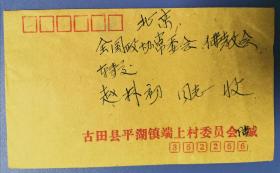 北京
全国政协常委会 佛教会
转交
赵朴初 同志 收
古田县平湖镇端上村委员会 缄
352266